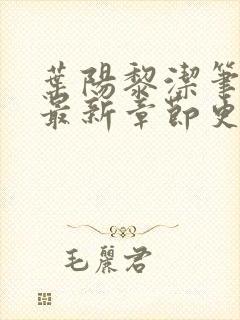 葉陽黎潔筆
最新章節史
毛麗君